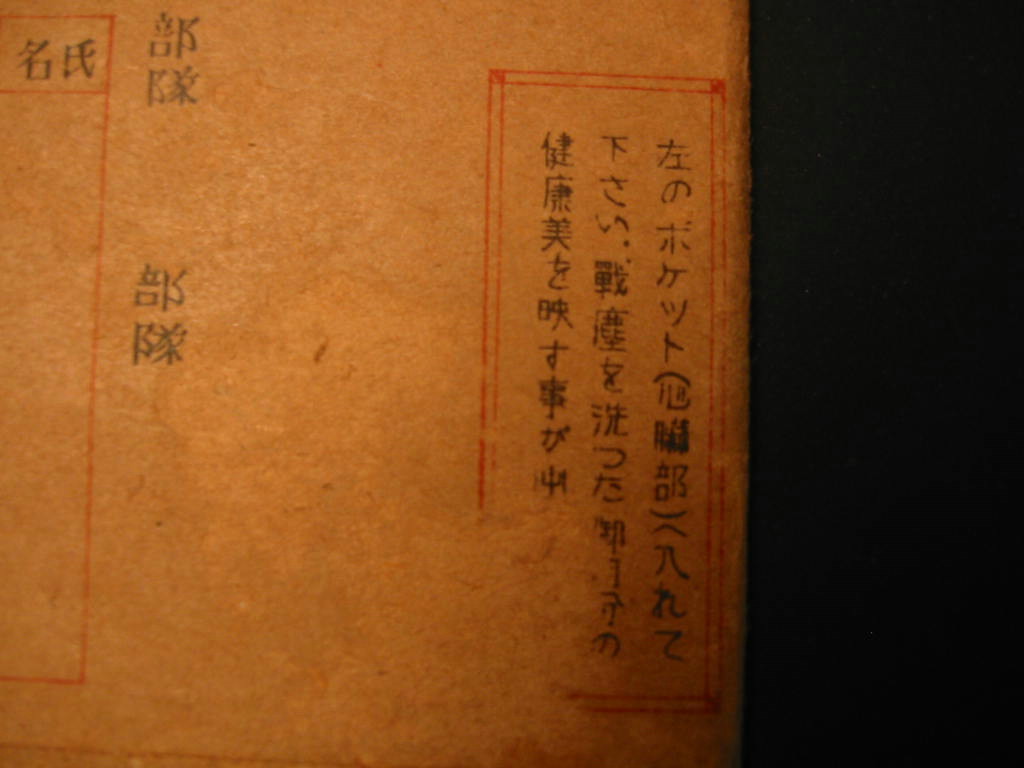 左のポケット(心臓部)へ入れて
下さい。戰塵を洗つた御自分の
健康美を映す事が出
部隊
部隊
氏名